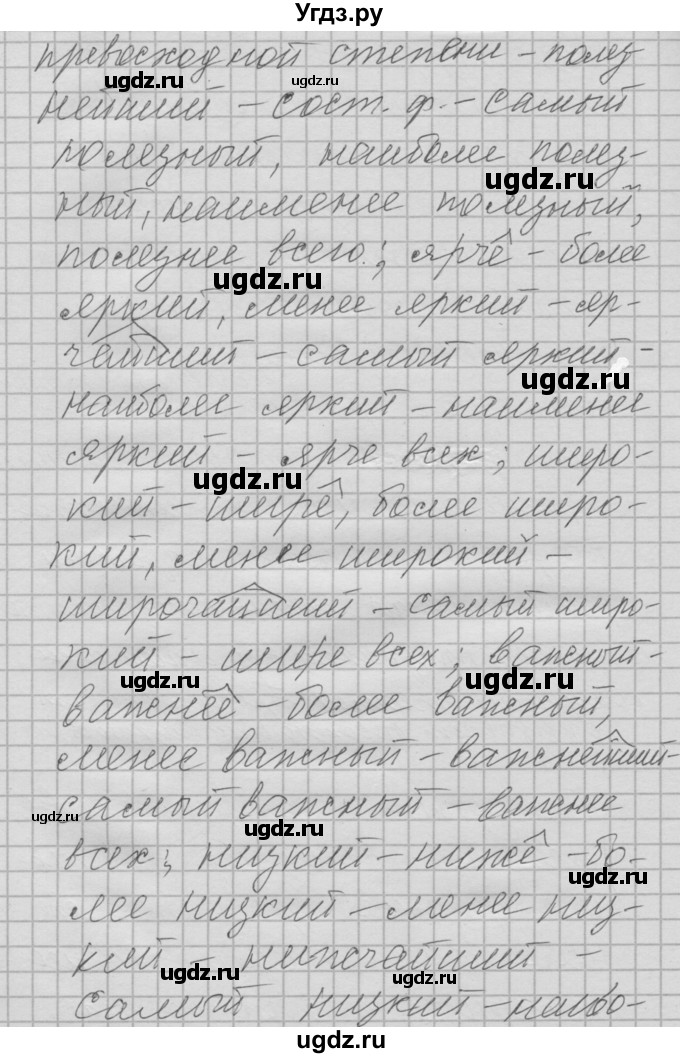 Угдз.ру
превосходной степени - полез
нейший - сост. ф. - самый
полезный, наиболее полез-
ный, наименее полезный,
полезнее всего; ярче - более
яркий, менее яркий - яр-
чайший - самый яркий -
наиболее яркий - наименее
яркий - ярче всех; широ-
кий - шире, более широ-
кий, менее широкий -
широчайший - самый широ-
кий - шире всех; важный -
важнее - более важный,
менее важный - важнейший -
самый важный - важнее
всех; низкий - ниже - бо-
лее низкий - менее низ-
кий - нижчайший -
самый низкий - наибо-
ugdz.ru
ugdz.ru
ugdz.ru
ugdz.ru
ugdz.ru
ugdz.ru
ugdz.ru
ugdz.ru
ugdz.ru
ugdz.ru
ugdz.ru
ugdz.ru
ugdz.ru
ugdz.ru